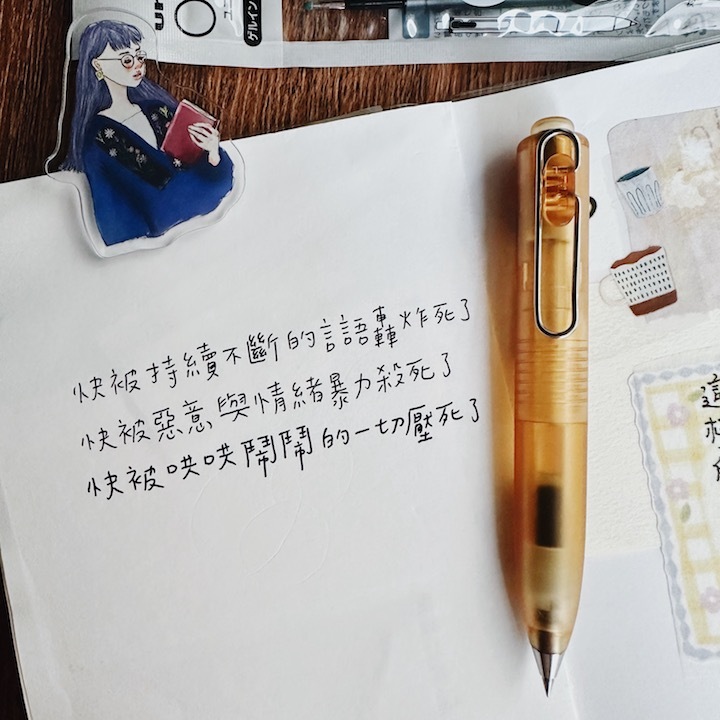 uni
ゲルイン
快被持續不斷的言語轟炸死了
快被惡意與情緒暴力殺死了
快被哄哄鬧鬧的一切壓死了
這